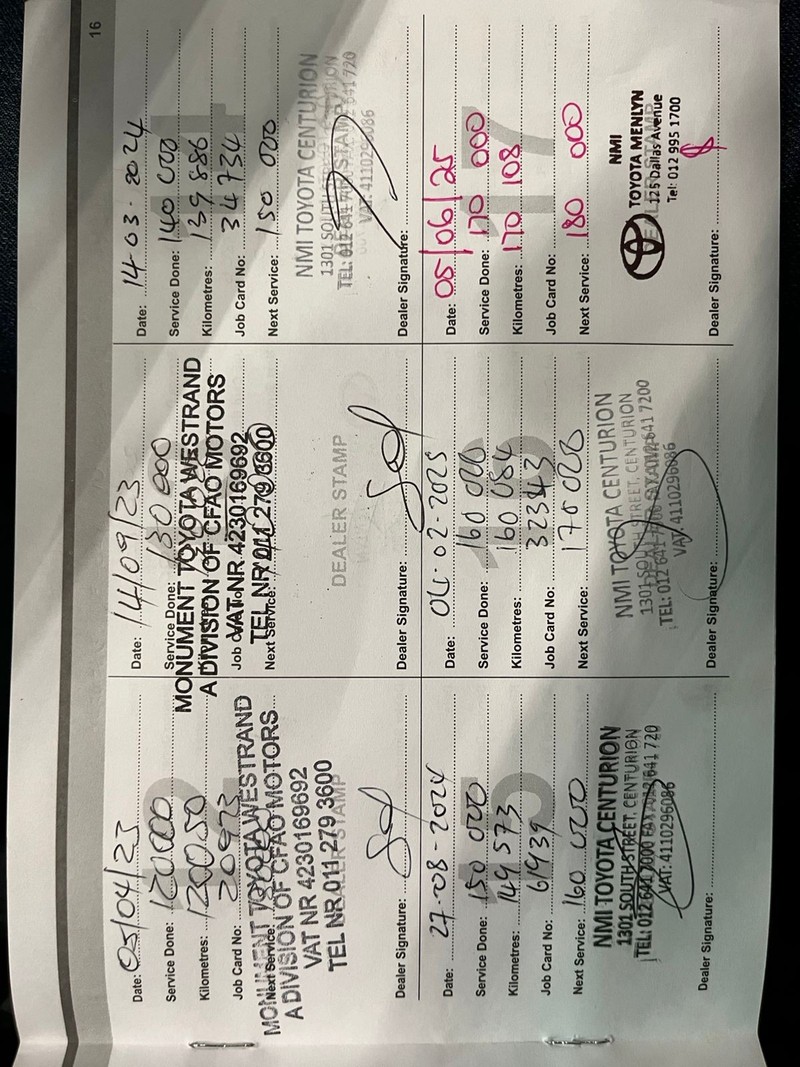 Date: 05/04/23
Service Done: 120000
Kilometres: 120050
Job Card No: 20973
Next Service:
MONUMENT TOYOTA WESTRAND
A DIVISION OF CFAO MOTORS
VAT NR 4230169692
TEL NR 011 279 3600
DEALER STAMP
Dealer Signature:
Date: 14/09/23
Service Done: 130 000
Kilometres:
Job Card No:
Next Service:
MONUMENT TOYOTA WESTRAND
A DIVISION OF CFAO MOTORS
VAT NR 4230169692
TEL NR 011 279 3600
DEALER STAMP
Dealer Signature:
Date: 14-03-2024
Service Done: 140 000
Kilometres: 139 886
Job Card No: 34734
Next Service: 150 000
NMI TOYOTA CENTURION
1301 SOUTH STREET, CENTURION
DEALER STAMP
VAT: 4110296086
Dealer Signature:
Date: 27-08-2024
Service Done: 150 000
Kilometres: 149 573
Job Card No: 61939
Next Service: 160 000
NMI TOYOTA CENTURION
1301 SOUTH STREET, CENTURION
VAT: 4110296086
Dealer Signature:
Date: 04-02-2025
Service Done: 160 000
Kilometres: 160 084
Job Card No: 32343
Next Service: 170 000
NMI TOYOTA CENTURION
1301 SOUTH STREET, CENTURION
VAT: 4110296086
Dealer Signature:
17
Date: 05/06/25
Service Done: 170 000
Kilometres: 170 108
Job Card No:
Next Service: 180 000
NMI
TOYOTA MENLYN
125 Dallas Avenue
DEALER STAMP
Tel: 012 995 1700
Dealer Signature:
16